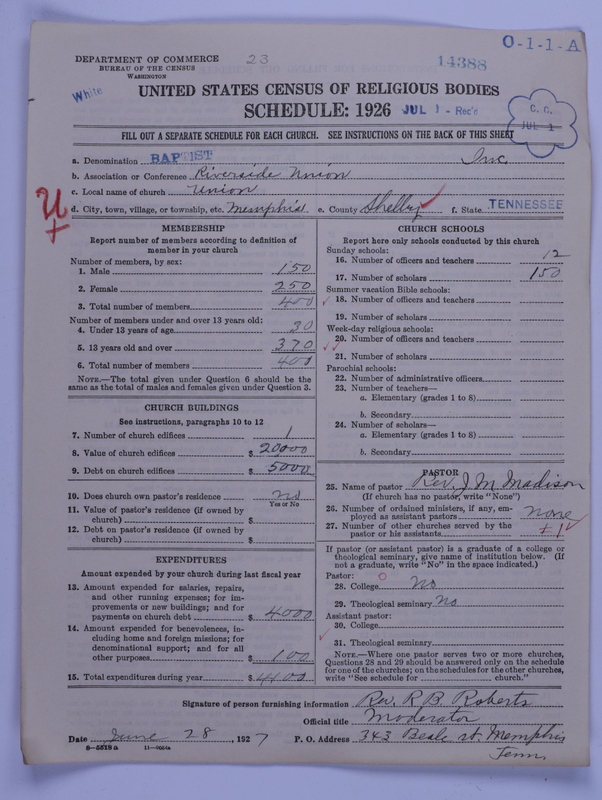 O-1-1-A
DEPARTMENT OF COMMERCE
BUREAU OF THE CENSUS
WASHINGTON
23
14388
White
UNITED STATES CENSUS OF RELIGIOUS BODIES
SCHEDULE: 1926 JUL 1 - Rec'd
C. C.
JUL 1
FILL OUT A SEPARATE SCHEDULE FOR EACH CHURCH. SEE INSTRUCTIONS ON THE BACK OF THIS SHEET
a. Denomination BAPTIST Inc.
b. Association or Conference Riverside Union
c. Local name of church Union
d. City, town, village, or township, etc. Memphis e. County Shelby f. State TENNESSEE
MEMBERSHIP
Report number of members according to definition of
member in your church
Number of members, by sex:
1. Male 150
2. Female 250
3. Total number of members 400
Number of members under and over 13 years old:
4. Under 13 years of age 30
5. 13 years old and over 370
6. Total number of members 400
NOTE.—The total given under Question 6 should be the
same as the total of males and females given under Question 3.
CHURCH BUILDINGS
See instructions, paragraphs 10 to 12
7. Number of church edifices 1
8. Value of church edifices $ 20000
9. Debt on church edifices $ 5000
10. Does church own pastor's residence no
Yes or No
11. Value of pastor's residence (if owned by
church) $
12. Debt on pastor's residence (if owned by
church) $
EXPENDITURES
Amount expended by your church during last fiscal year
13. Amount expended for salaries, repairs,
and other running expenses; for im-
provements or new buildings; and for
payments on church debt $ 4000
14. Amount expended for benevolences, in-
cluding home and foreign missions; for
denominational support; and for all
other purposes $ 100
15. Total expenditures during year $ 4100
CHURCH SCHOOLS
Report here only schools conducted by this church
Sunday schools:
16. Number of officers and teachers 12
17. Number of scholars 150
Summer vacation Bible schools:
18. Number of officers and teachers
19. Number of scholars
Week-day religious schools:
20. Number of officers and teachers
21. Number of scholars
Parochial schools:
22. Number of administrative officers
23. Number of teachers—
a. Elementary (grades 1 to 8)
b. Secondary
24. Number of scholars—
a. Elementary (grades 1 to 8)
b. Secondary
PASTOR
25. Name of pastor Rev. J. M. Madison
(If church has no pastor, write "None")
26. Number of ordained ministers, if any, em-
ployed as assistant pastors none
27. Number of other churches served by the
pastor or his assistants 1
If pastor (or assistant pastor) is a graduate of a college or
theological seminary, give name of institution below. (If
not a graduate, write "No" in the space indicated.)
Pastor:
28. College No
29. Theological seminary No
Assistant pastor:
30. College
31. Theological seminary
NOTE.—Where one pastor serves two or more churches,
Questions 28 and 29 should be answered only on the schedule
for one of the churches; on the schedules for the other churches,
write "See schedule for church."
Signature of person furnishing information Rev. R. B. Roberts
Official title Moderator
Date June 28, 1927 P. O. Address 343 Beale st. Memphis
Tenn.